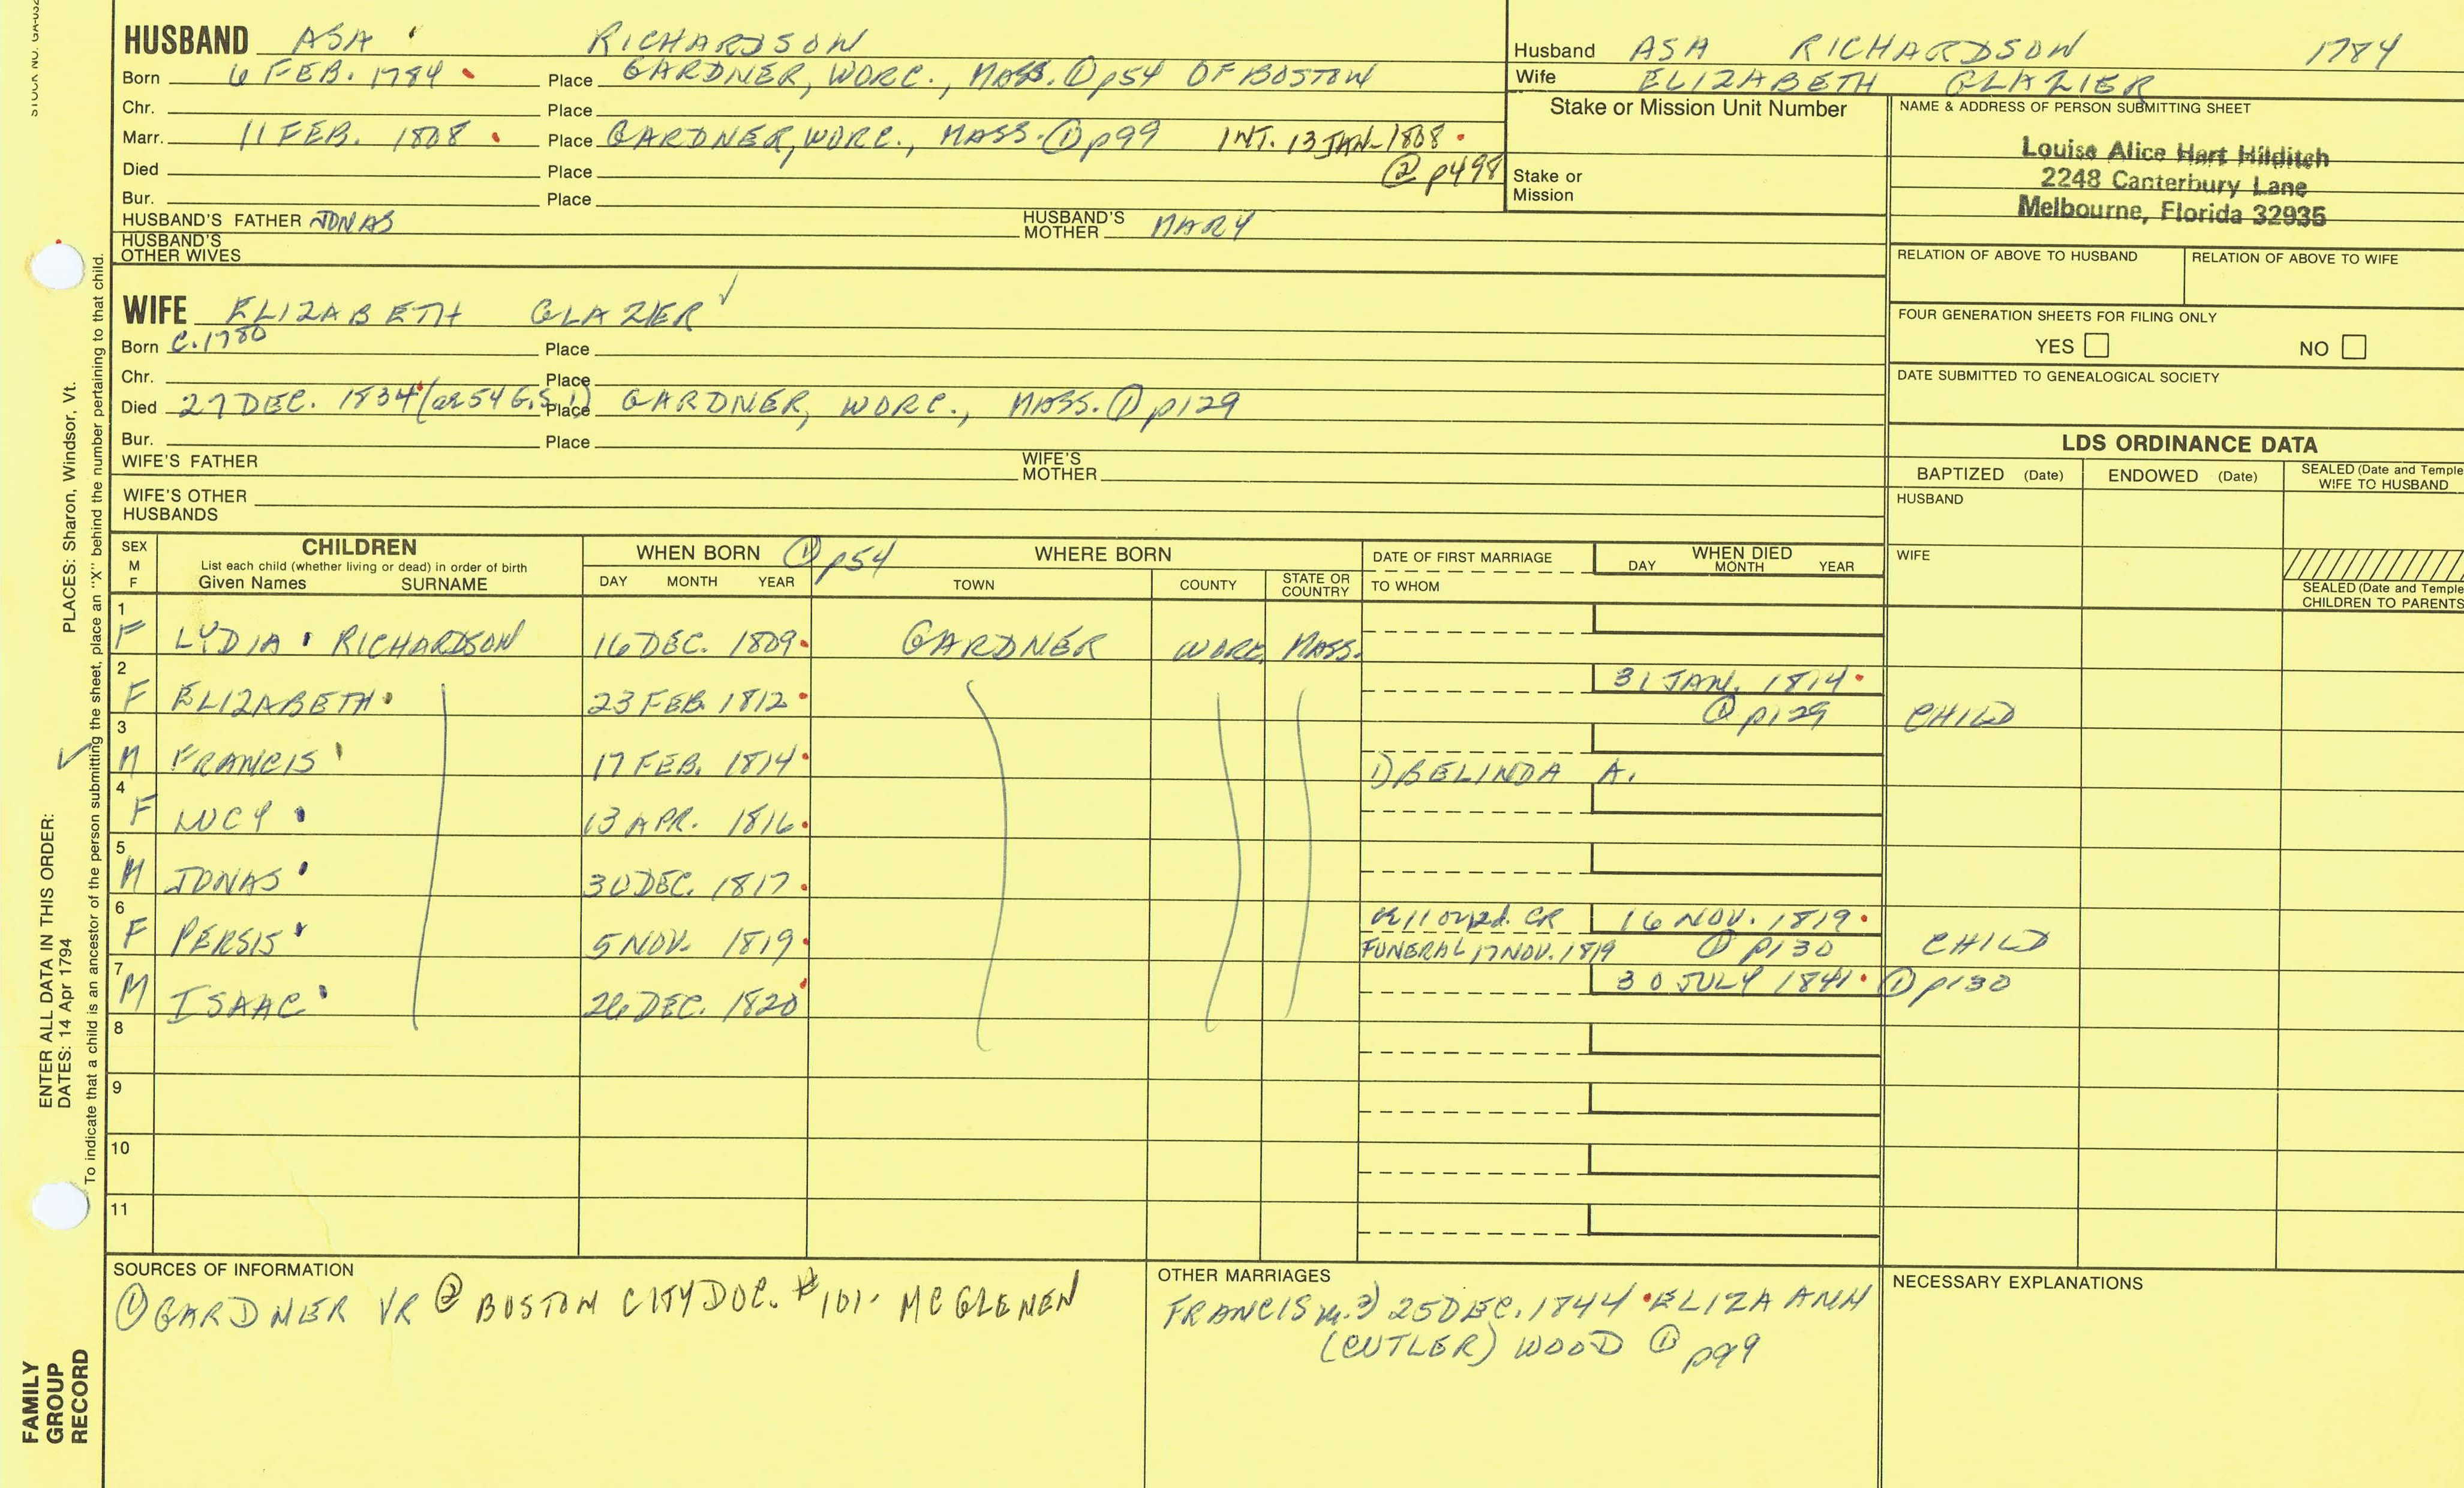 HUSBAND ASA RICHARDSON
Born 6 FEB. 1784 Place GARDNER, WORC., MASS. ① p54 OF BOSTON
Chr. Place
Marr. 11 FEB. 1808 Place GARDNER, WORC., MASS. ① p99 INT. 13 JAN. 1808
② p498
Died Place
Bur. Place
HUSBAND'S FATHER JONAS HUSBAND'S MOTHER MARY
HUSBAND'S OTHER WIVES
Husband ASA RICHARDSON 1784
Wife ELIZABETH GLAZIER
Stake or Mission Unit Number
Stake or Mission
NAME & ADDRESS OF PERSON SUBMITTING SHEET
Louise Alice Hart Hilditch
2248 Canterbury Lane
Melbourne, Florida 32935
RELATION OF ABOVE TO HUSBAND RELATION OF ABOVE TO WIFE
FOUR GENERATION SHEETS FOR FILING ONLY
YES NO
DATE SUBMITTED TO GENEALOGICAL SOCIETY
WIFE ELIZABETH GLAZIER ✓
Born C. 1780 Place
Chr. Place
Died 27 DEC. 1834 (ae 54 G.S.1) Place GARDNER, WORC., MASS. ① p129
Bur. Place
WIFE'S FATHER WIFE'S MOTHER
WIFE'S OTHER HUSBANDS
LDS ORDINANCE DATA
BAPTIZED (Date) ENDOWED (Date) SEALED (Date and Temple) WIFE TO HUSBAND
HUSBAND
WIFE
SEALED (Date and Temple) CHILDREN TO PARENTS
SEX M F CHILDREN WHEN BORN ① p54 WHERE BORN DATE OF FIRST MARRIAGE WHEN DIED
List each child (whether living or dead) in order of birth
Given Names SURNAME DAY MONTH YEAR TOWN COUNTY STATE OR COUNTRY TO WHOM DAY MONTH YEAR
1 F LYDIA RICHARDSON 16 DEC. 1809 GARDNER WORC. MASS.
2 F ELIZABETH 23 FEB. 1812 31 JAN. 1814
① p129 CHILD
3 ✓ M FRANCIS 17 FEB. 1814 1) BELINDA A.
4 F LUCY 13 APR. 1816
5 M JONAS 30 DEC. 1817
6 F PERSIS 5 NOV. 1819 CR 16 NOV. 1819
FUNERAL 17 NOV. 1819 ① p130 CHILD
7 M ISAAC 26 DEC. 1820 30 JULY 1841 ① p130
8
9
10
11
SOURCES OF INFORMATION
① GARDNER VR ② BOSTON CITY DOC. #101- MCGLENEN
OTHER MARRIAGES
FRANCIS m. 2) 25 DEC. 1844 ELIZA ANN
(CUTLER) WOOD ① p99
NECESSARY EXPLANATIONS
PLACES: Sharon, Windsor, Vt.
ENTER ALL DATA IN THIS ORDER:
DATES: 14 Apr 1794
To indicate that a child is an ancestor of the person submitting the sheet, place an "X" behind the number pertaining to that child.
FAMILY
GROUP
RECORD